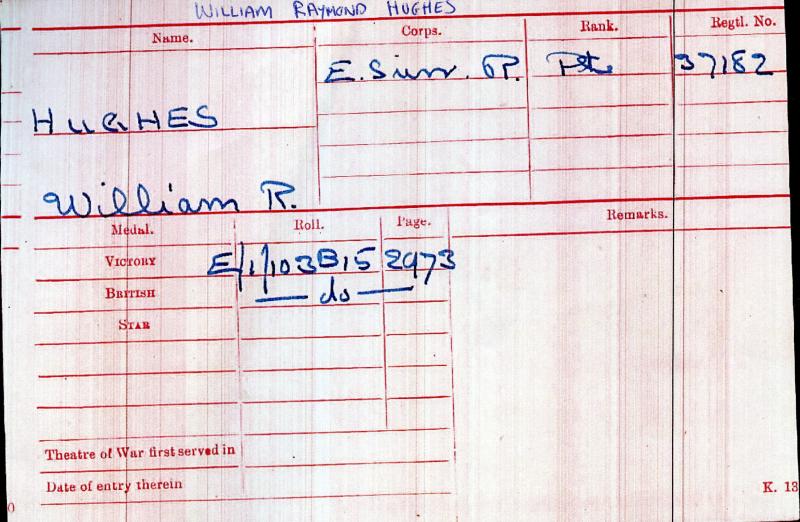 WILLIAM RAYMOND HUGHES
Name. Corps. Rank. Regtl. No.
E. Surr. R. Pte 37182
HUGHES
William R.
Medal. Roll. Page. Remarks.
VICTORY E/1/103B15 2973
BRITISH — do —
STAR
Theatre of War first served in
Date of entry therein
K. 13